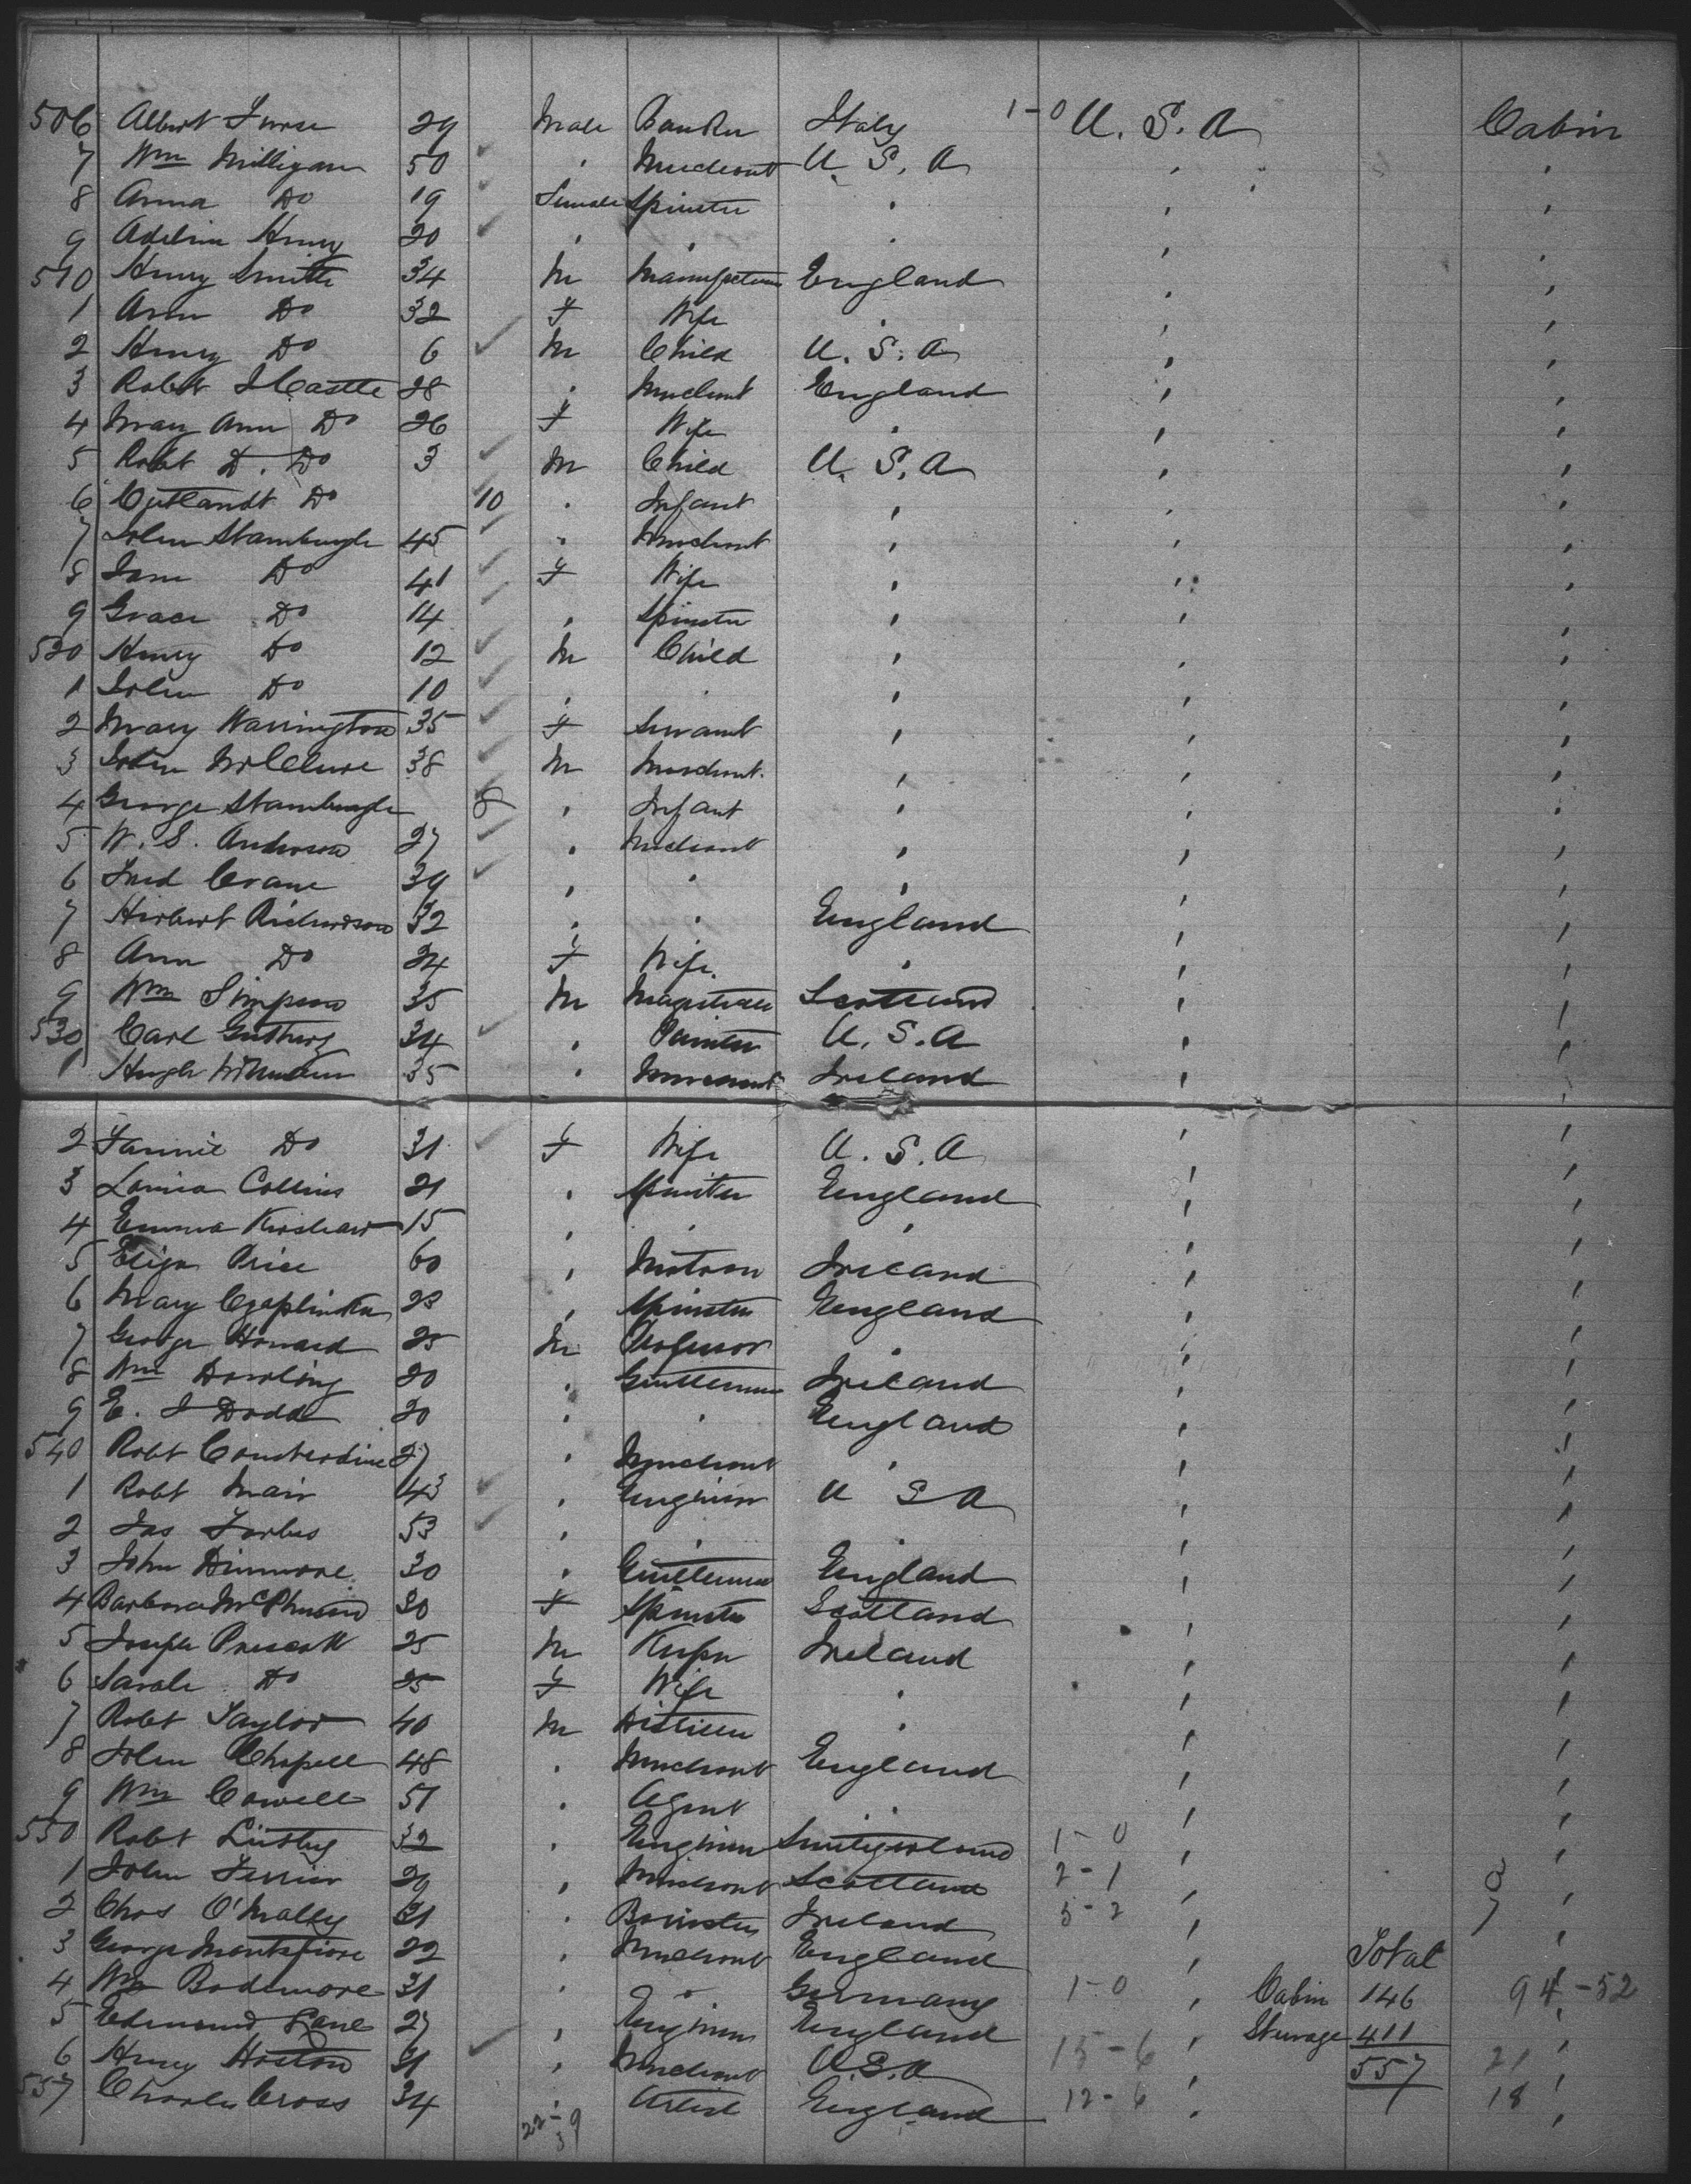 506 Albert Furse 29 Male Banker Italy 1-0 U. S. A Cabin
7 Wm Milligan 50 " Merchant U. S. A " "
8 Anna Do 19 Female Spinster " " "
9 Adeline Henry 20 " " " " "
510 Henry Smith 34 M Manufacturer England " "
1 Ann Do 32 F Wife " " "
2 Henry Do 6 M Child U. S. A " "
3 Robert J Castle 28 " Merchant England " "
4 Mary Ann Do 26 F Wife " " "
5 Robt D. Do 3 M Child U. S. A " "
6 Cortlandt Do 10 " Infant " " "
7 John Stamburgh 45 " Merchant " " "
8 Jane Do 41 F Wife " " "
9 Grace Do 14 " Spinster " " "
520 Henry Do 12 M Child " " "
1 John Do 10 " " " " "
2 Mary Warrington 35 F Servant " " "
3 John McClure 38 M Merchant " " "
4 George Stamburgh 8 " Infant " " "
5 W. S. Anderson 27 " Merchant " " "
6 Fred Crane 39 " " " " "
7 Herbert Richardson 32 " " England " "
8 Ann Do 24 F Wife " " "
9 Wm Simpson 35 M Magistrate Scotland " "
530 Carl Gutherz 34 " Painter U. S. A " "
1 Hugh 35 " Merchant Ireland " "
2 Fannie Do 31 F Wife U. S. A " "
3 Louisa Collins 21 " Spinster England " "
4 Emma Kershaw 15 " " " " "
5 Eliza Price 60 " Matron Ireland " "
6 Mary Czaplinska 23 " Spinster England " "
7 George Howard 25 M Professor " " "
8 Wm Dowling 20 " Gentleman Ireland " "
9 E. J Dodd 20 " " England " "
540 Robt Consterdine 27 " Merchant " " "
1 Robt Mair 43 " Engineer U S A " "
2 Jas Forbes 53 " " " " "
3 John Dinmore 30 " Gentleman England " "
4 Barbara McPherson 30 F Spinster Scotland " "
5 Joseph Prescott 25 M Keeper Ireland " "
6 Sarah Do 25 F Wife " " "
7 Robt Taylor 40 M Distiller " " "
8 John Chapell 48 " Merchant England " "
9 Wm Cowell 51 " Agent " " "
550 Robt 32 " Engineer Switzerland 1-0 " "
1 John Ferrier 29 " Merchant Scotland 2-1 " " 8
2 Chas O'Malley 31 " Barrister Ireland 3-2 " " 7
3 George Montefiore 22 " Merchant England " Total "
4 Wm Bodemore 31 " " Germany 1-0 " Cabin 146 94-52
5 Edmund Lane 27 " Engineer England " Steerage 411 "
6 Henry Hoston 31 " Merchant U.S.A 15-6 " 557 21 "
557 Charles Cross 34 " Artist England 12-6 " 18 "
22-59